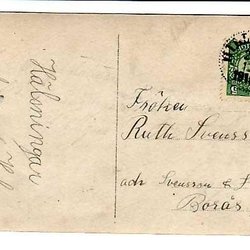 Hälsningar
Fröken
Ruth Svensso
adr Svensson & S
Borås